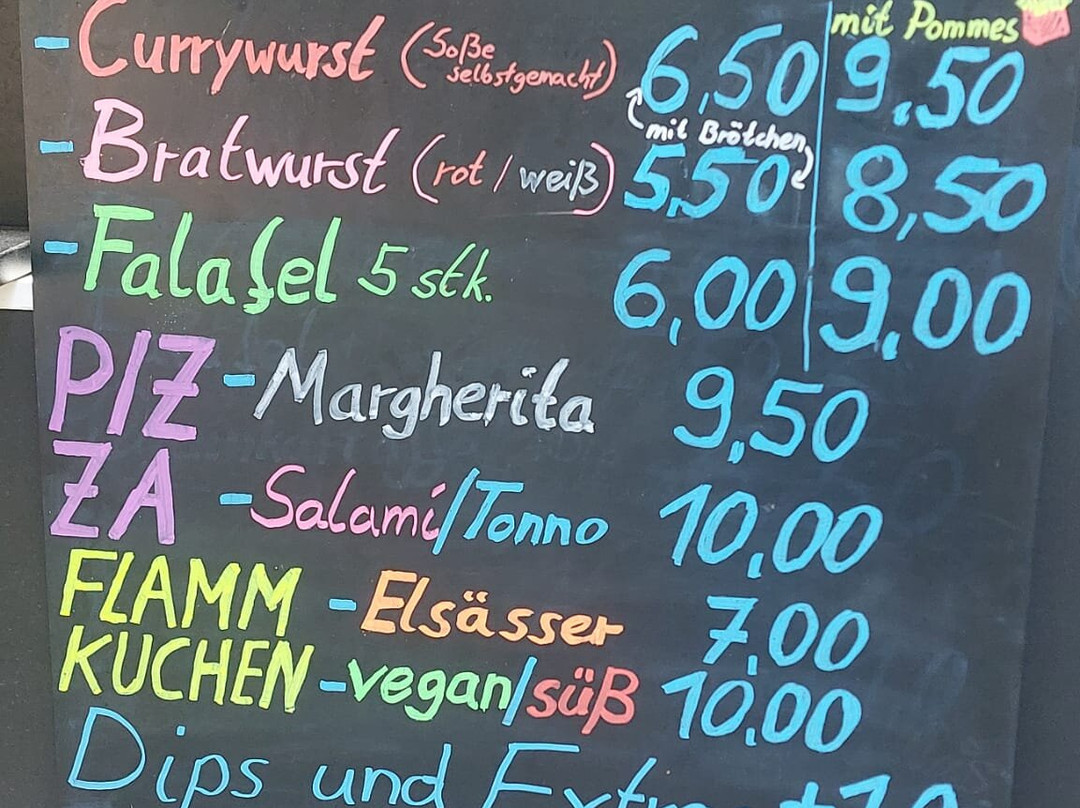 mit Pommes
- Currywurst (Soße selbstgemacht) 6,50 9,50
mit Brötchen
- Bratwurst (rot / weiß) 5,50 8,50
- Falafel 5 stk. 6,00 9,00
PIZ - Margherita 9,50
ZA - Salami/Tonno 10,00
FLAMM - Elsässer 7,00
KUCHEN - vegan/süß 10,00
Dips und